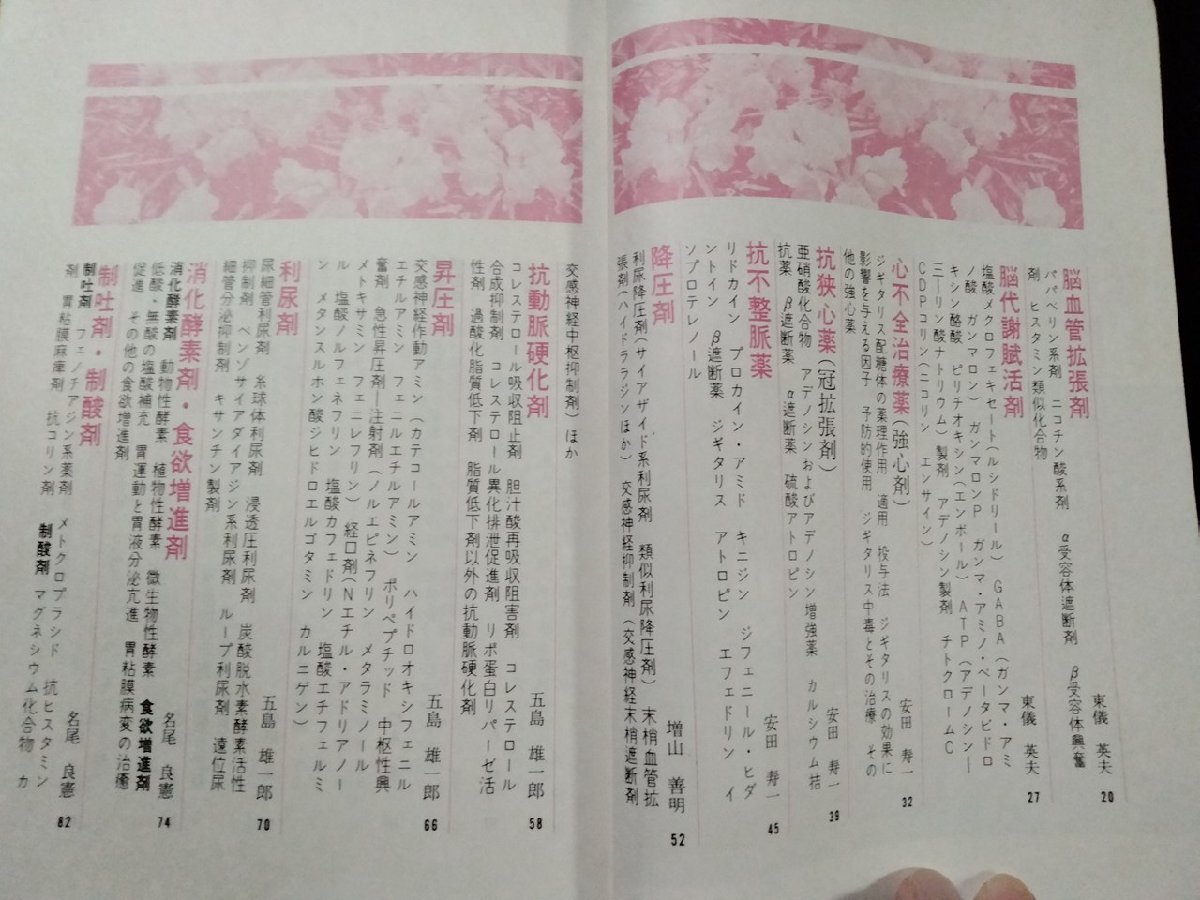 脳血管拡張剤 東儀 英夫 20
パパベリン系剤 ニコチン酸系剤 α受容体遮断剤 β受容体興奮
剤 ヒスタミン類似化合物
脳代謝賦活剤 東儀 英夫 27
塩酸メクロフェキセート(ルシドリール) GABA(ガンマ・アミ
ノ酸 ガンマロン) ガンマロンP ガンマ・アミノ・ベータヒドロ
キシン酪酸 ピリチオキシン(エンボール) ATP(アデノシン―
三―リン酸ナトリウム)製剤 アデノシン製剤 チトクロームC
CDPコリン(ニコリン エンサイン)
心不全治療薬(強心剤) 安田 寿一 32
ジギタリス配糖体の薬理作用 適用 投与法 ジギタリスの効果に
影響を与える因子 予防的使用 ジギタリス中毒とその治療 その
他の強心薬
抗狭心薬(冠拡張剤) 安田 寿一 39
亜硝酸化合物 アデノシンおよびアデノシン増強薬 カルシウム拮
抗薬 β遮断薬 α遮断薬 硫酸アトロピン
抗不整脈薬 安田 寿一 45
リドカイン プロカイン・アミド キニジン ジフェニール・ヒダ
ントイン β遮断薬 ジギタリス アトロピン エフェドリン イ
ソプロテレノール
降圧剤 増山 善明 52
利尿降圧剤(サイアザイド系利尿剤 類似利尿降圧剤) 末梢血管拡
張剤(ハイドララジンほか) 交感神経抑制剤(交感神経末梢遮断剤
交感神経中枢抑制剤)ほか
抗動脈硬化剤 五島 雄一郎 58
コレステロール吸収阻止剤 胆汁酸再吸収阻害剤 コレステロール
合成抑制剤 コレステロール異化排泄促進剤 リポ蛋白リパーゼ活
性剤 過酸化脂質低下剤 脂質低下剤以外の抗動脈硬化剤
昇圧剤 五島 雄一郎 66
交感神経作動アミン(カテコールアミン ハイドロオキシフェニル
エチルアミン フェニルエチルアミン) ポリペプチッド 中枢性興
奮剤 急性昇圧剤―注射剤(ノルエピネフリン メタラミノール
メトキサミン フェニレフリン) 経口剤(Nエチル・アドリアノー
ル 塩酸ノルフェネフリン 塩酸カフェドリン 塩酸エチフェルミ
ン メタンスルホン酸ジヒドロエルゴタミン カルニゲン)
利尿剤 五島 雄一郎 70
尿細管利尿剤 糸球体利尿剤 浸透圧利尿剤 炭酸脱水素酵素活性
抑制剤 ベンゾサイアダイアジン系利尿剤 ループ利尿剤 遠位尿
細管分泌抑制剤 キサンチン製剤
消化酵素剤・食欲増進剤 名尾 良憲 74
消化酵素剤 動物性酵素 植物性酵素 微生物性酵素 食欲増進剤
低酸・無酸の塩酸補充 胃運動と胃液分泌亢進 胃粘膜病変の治癒
促進 その他の食欲増進剤
制吐剤・制酸剤 名尾 良憲 82
制吐剤 フェノチアジン系薬剤 メトクロプラシド 抗ヒスタミン
剤 胃粘膜麻痺剤 抗コリン剤 制酸剤 マグネシウム化合物 カ